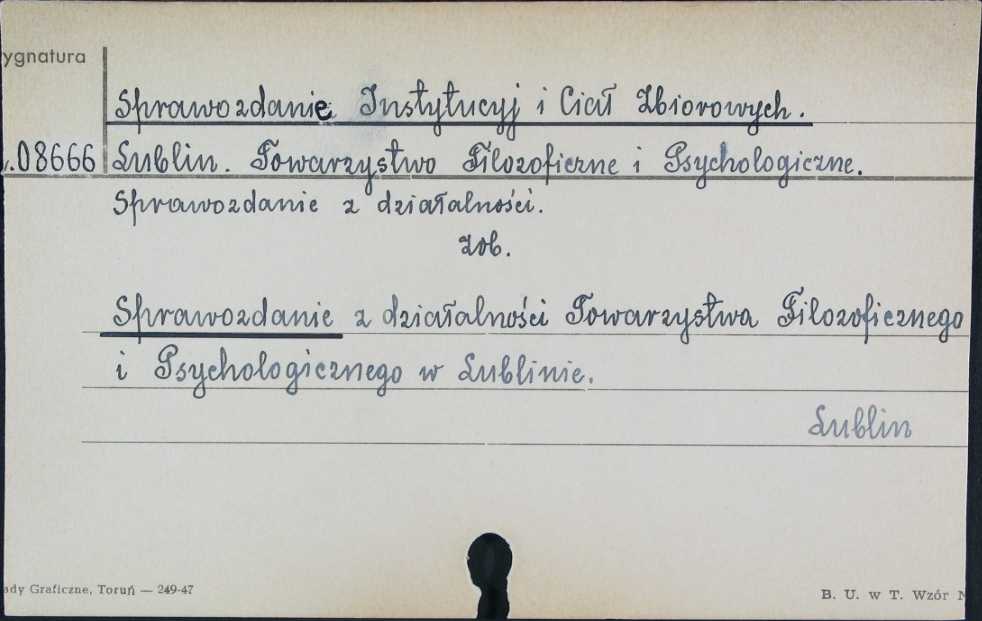 ygnatura
Sprawozdanie Instytucyj i Ciał Zbiorowych.
.08666 Lublin. Towarzystwo Filozoficzne i Psychologiczne.
Sprawozdanie z działalności.
zob.
Sprawozdanie z działalności Towarzystwa Filozoficznego
i Psychologicznego w Lublinie.
Lublin
ady Graficzne, Toruń — 249-47
B. U. w T. Wzór N